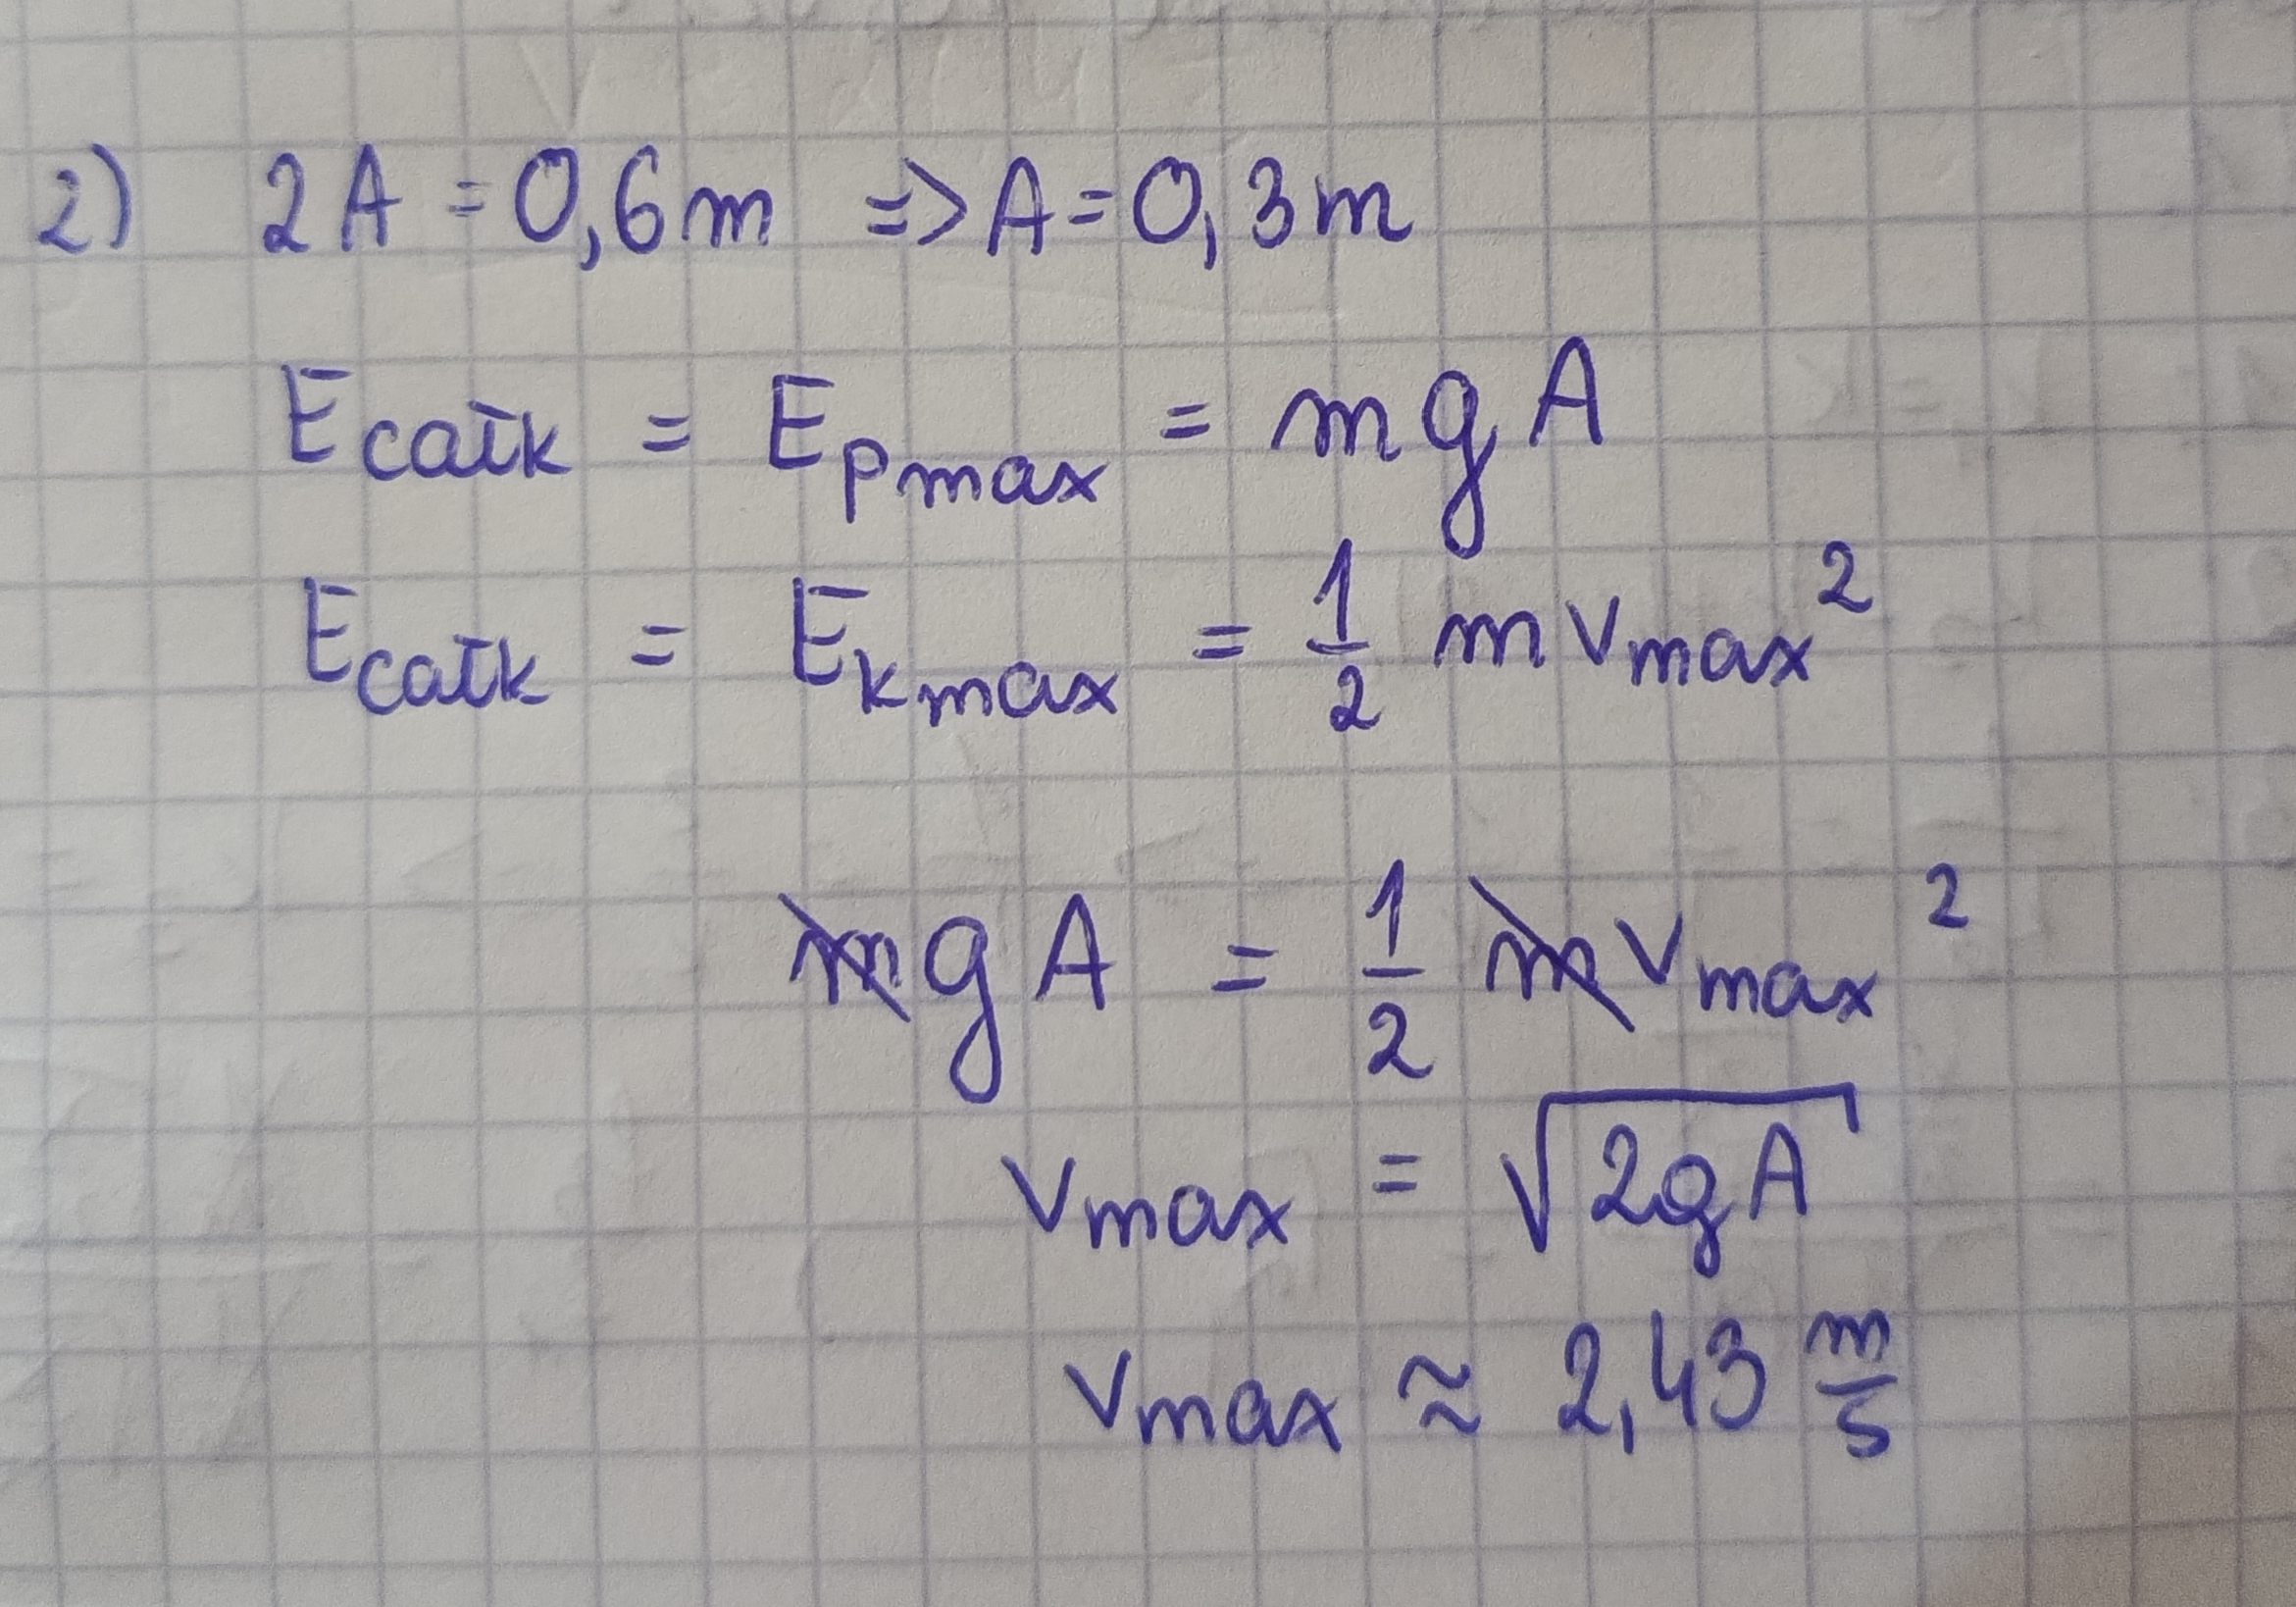 2) 2A = 0,6m => A = 0,3m
Ecałk = Epmax = mgA
Ecałk = Ekmax = 1/2 mvmax²
mgA = 1/2 mvmax²
vmax = √2gA
vmax ≈ 2,43 m/s